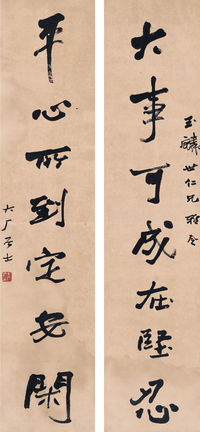 大事可成在堅忍
玉麟世仁兄雅令
平心所到定安閑
大厂居士